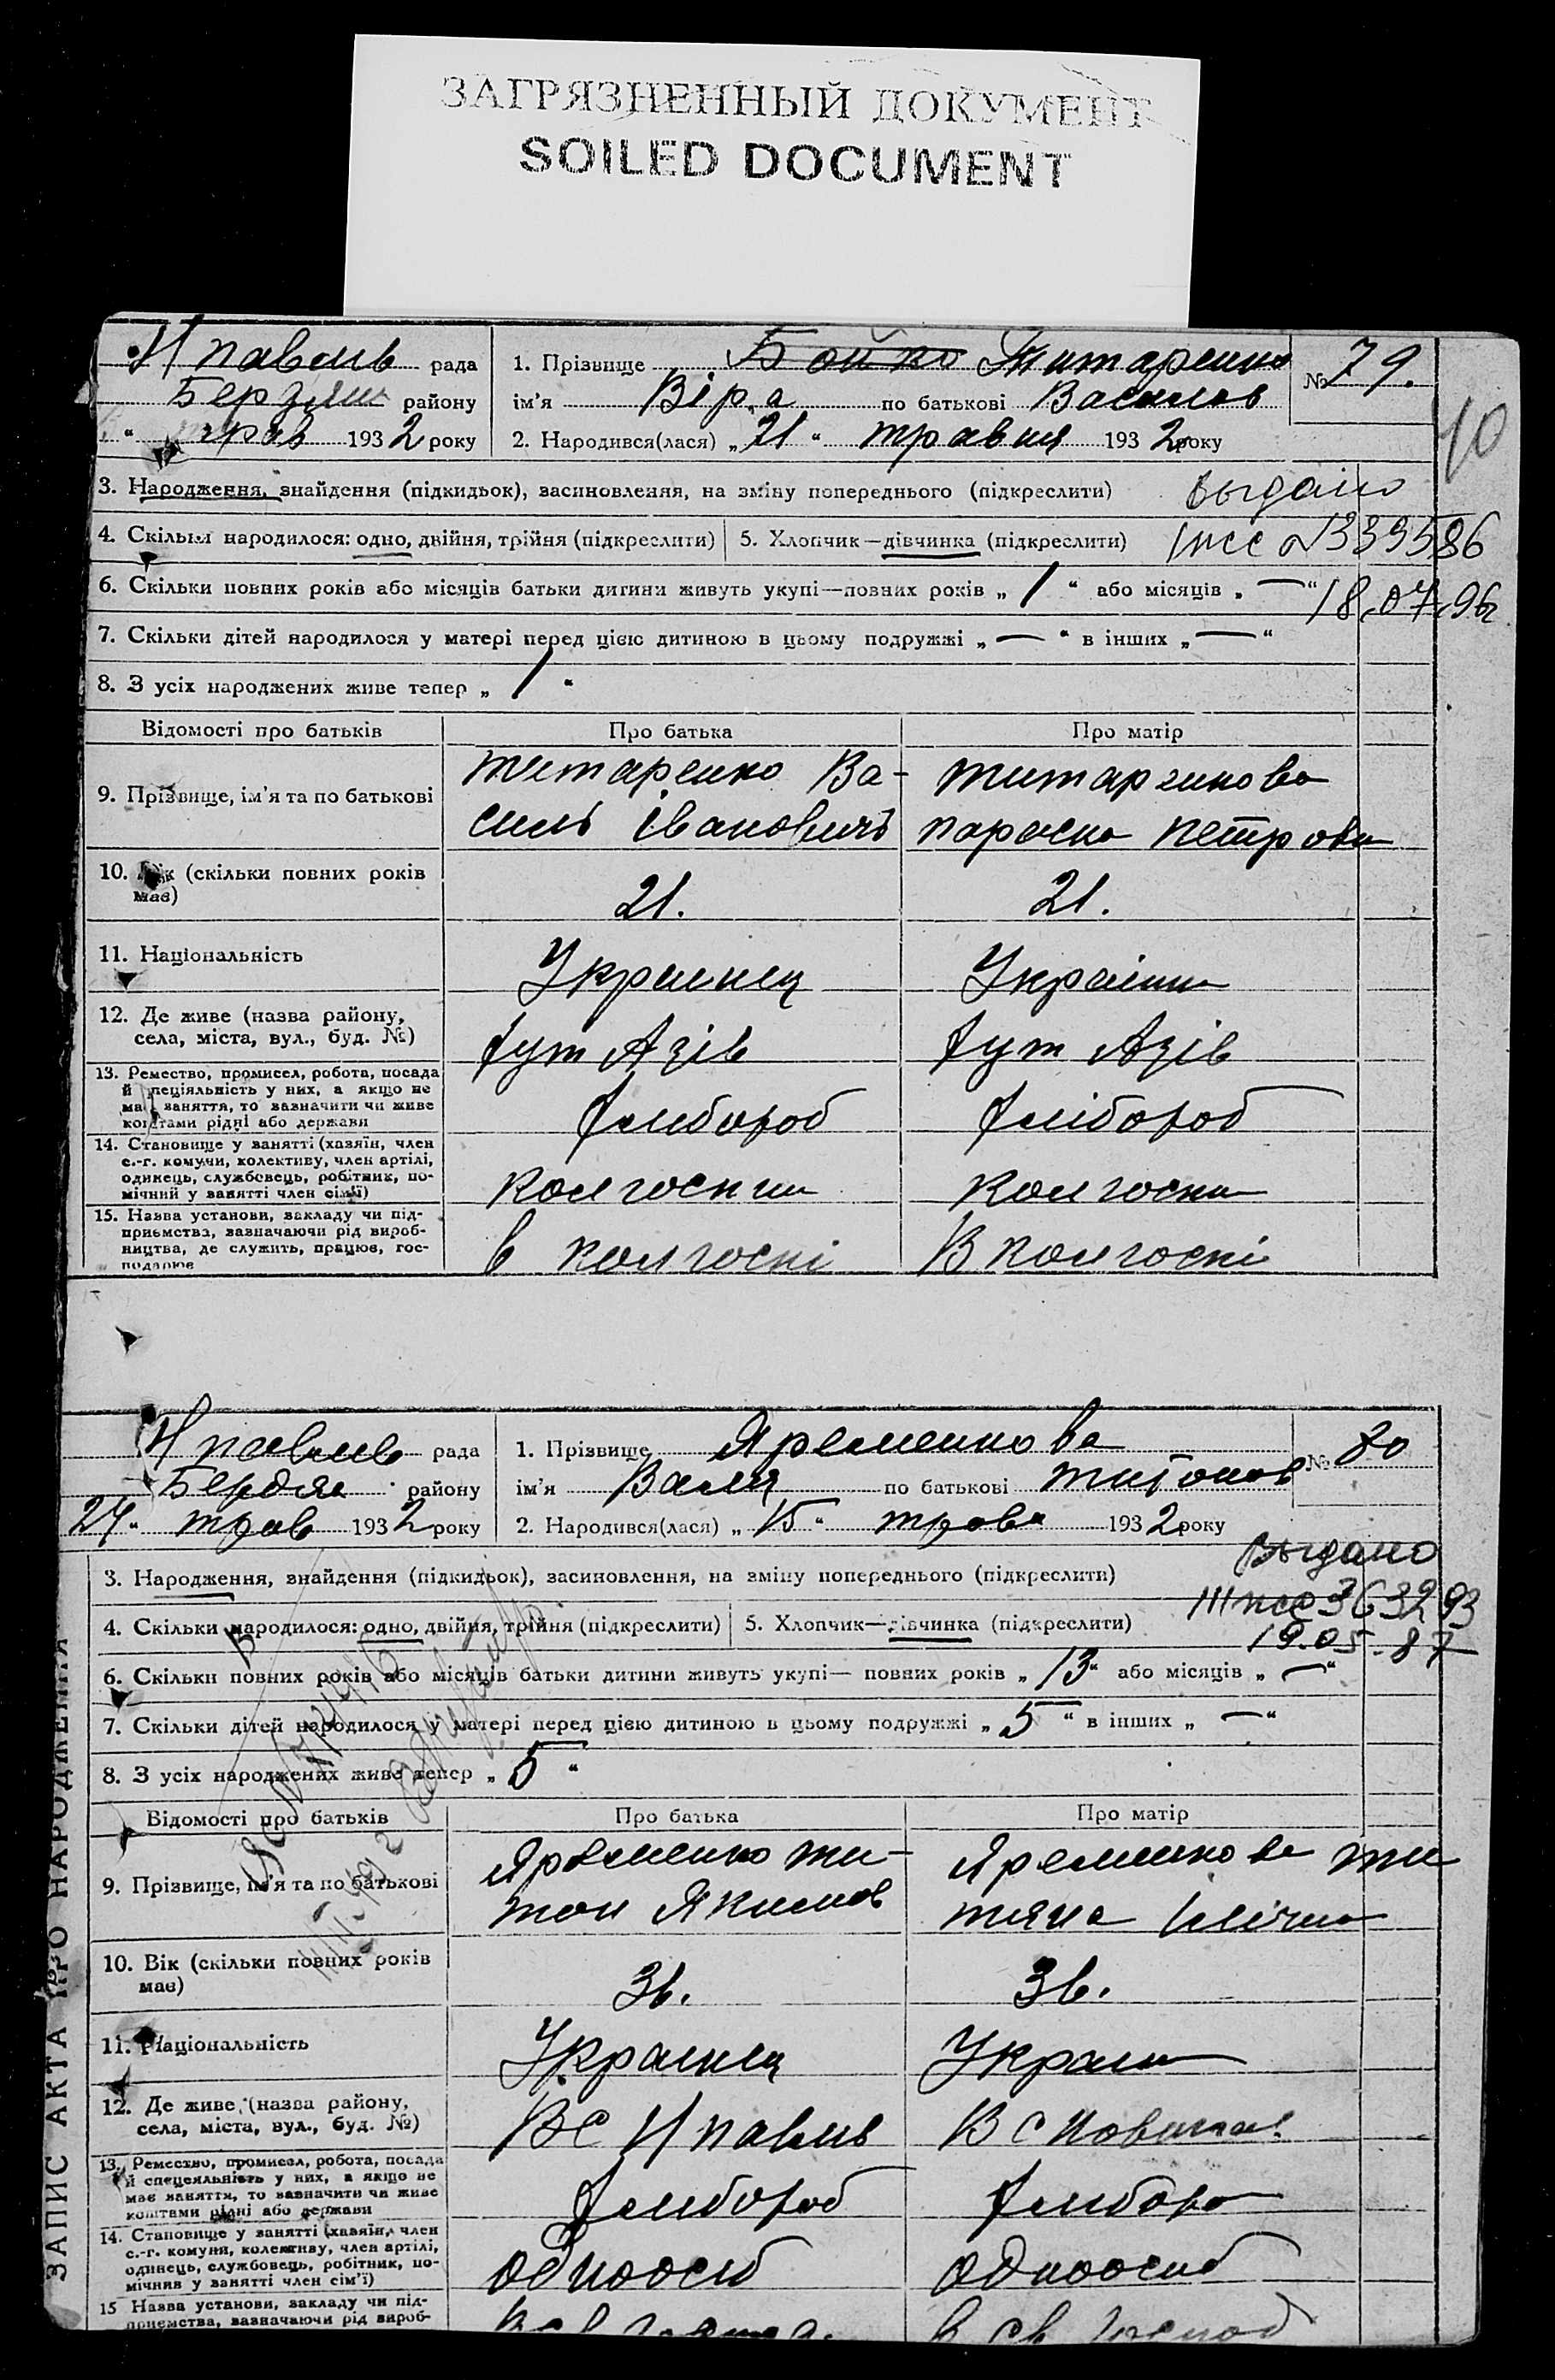 ЗАГРЯЗНЕННЫЙ ДОКУМЕНТ
SOILED DOCUMENT
Н павлів рада
Бердян району
трав 1932 року
1. Прізвище Бойко Титаренко
ім'я Віра по батькові Василів
2. Народився(лася) „21“ травня 1932 року
№ 79.
10
3. Народження, знайдення (підкидьок), засиновлення, на зміну попереднього (підкреслити)
выдано
4. Скільки народилося: одно, двійня, трійня (підкреслити)
5. Хлопчик—дівчинка (підкреслити)
339586
6. Скільки повних років або місяців батьки дитини живуть укупі—повних років „1“ або місяців „—“
18.07.96г
7. Скільки дітей народилося у матері перед цією дитиною в цьому подружжі „—“ в інших „—“
8. З усіх народжених живе тепер „1“
Відомості про батьків
Про батька
Про матір
9. Прізвище, ім'я та по батькові
Титаренко Ва-
силь Івановичь
Титаренкова
Параска Петровн
10. Вік (скільки повних років
має)
21.
21.
11. Національність
Украинец
Україн
12. Де живе (назва району,
села, міста, вул., буд. №)
Хут Азів
Хут Азів
13. Ремество, промисел, робота, посада
й спеціяльність у них, а якщо не
має заняття, то зазначити чи живе
коштами рідні або держави
Хлибороб
Хлібороб
14. Становище у занятті (хазяїн, член
с.-г. комуни, колективу, член артілі,
одинець, службовець, робітник, по-
мічний у занятті член сім'ї)
колгоспни
колгоспн
15. Назва установи, закладу чи під-
приємства, зазначаючи рід вироб-
ництва, де служить, працює, гос-
подарює
в колгоспі
В колгоспі
Н павлив рада
Бердян району
27 „ трав 1932 року
1. Прізвище Яременкова
ім'я Валя по батькові Титонов
2. Народився(лася) „15“ трав 1932 року
№ 80
выдано
3. Народження, знайдення (підкидьок), засиновлення, на зміну попереднього (підкреслити)
363293
4. Скільки народилося: одно, двійня, трійня (підкреслити)
5. Хлопчик—дівчинка (підкреслити)
19.05.87
6. Скільки повних років або місяців батьки дитини живуть укупі— повних років „13“ або місяців „—“
7. Скільки дітей народилося у матері перед цією дитиною в цьому подружжі „5“ в інших „—“
8. З усіх народжених живе тепер „5“
Відомості про батьків
Про батька
Про матір
9. Прізвище, ім'я та по батькові
Яременко Ти-
тон Якимов
Яременкова Те
тяна
10. Вік (скільки повних років
має)
36.
36.
11. Національність
Украинец
Украин
12. Де живе (назва району,
села, міста, вул., буд. №)
В С Н павлив
В С
13. Ремество, промисел, робота, посада
й спеціяльність у них, а якщо не
має заняття, то зазначити чи живе
коштами рідні або держави
Хлибороб
Хлиборо
14. Становище у занятті (хазяїн, член
с.-г. комуни, колективу, член артілі,
одинець, службовець, робітник, по-
мічний у занятті член сім'ї)
одноосіб
одноосиб
15 Назва установи, закладу чи під-
приємства, зазначаючи рід вироб-
в св господ
ЗАПИС АКТА ПРО НАРОДЖЕННЯ